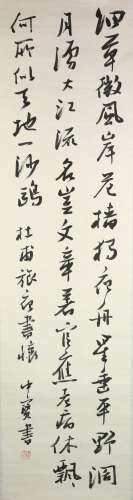 細草微風岸危檣獨夜舟星垂平野闊
月湧大江流名豈文章著官應老病休飄々
何所似天地一沙鷗 杜甫旅夜書懷 中 書